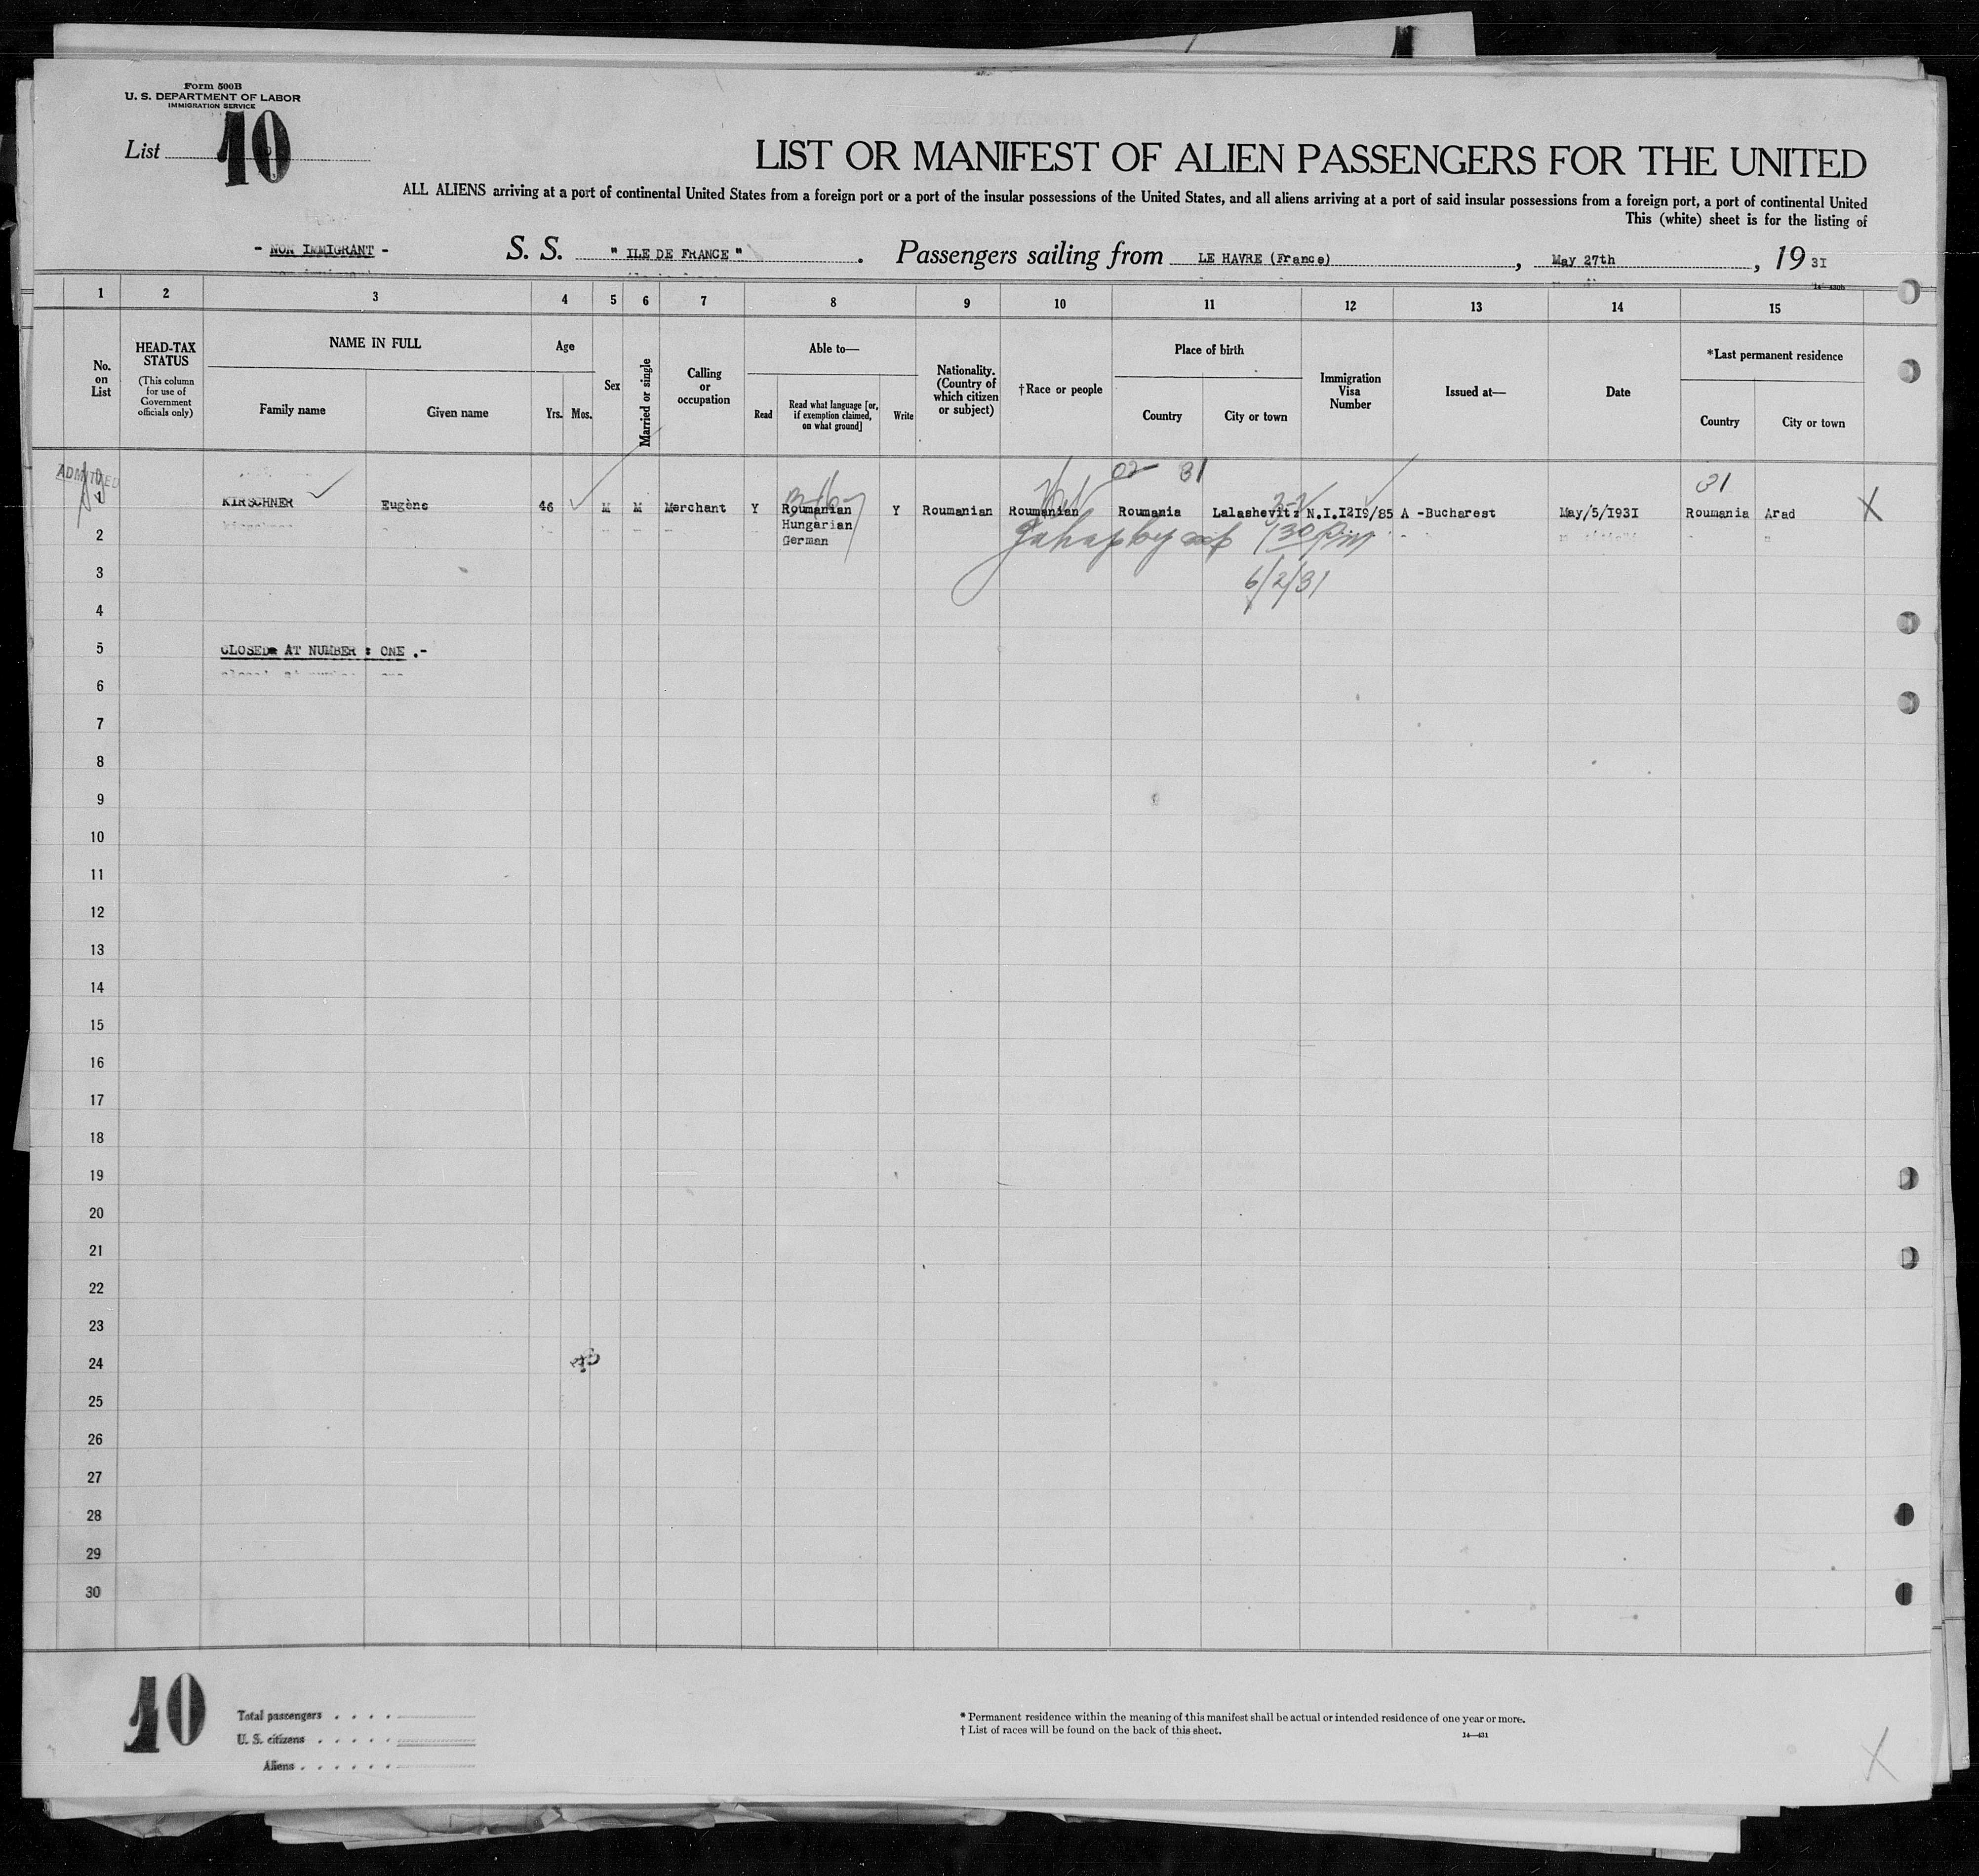 Form 500B
U. S. DEPARTMENT OF LABOR
IMMIGRATION SERVICE
List 10
LIST OR MANIFEST OF ALIEN PASSENGERS FOR THE UNITED
ALL ALIENS arriving at a port of continental United States from a foreign port or a port of the insular possessions of the United States, and all aliens arriving at a port of said insular possessions from a foreign port, a port of continental United
This (white) sheet is for the listing of
- NON IMMIGRANT - S. S. " ILE DE FRANCE " . Passengers sailing from LE HAVRE (France) , May 27th , 19 31
1 2 3 4 5 6 7 8 9 10 11 12 13 14 15
No. on List
HEAD-TAX STATUS
(This column for use of Government officials only)
NAME IN FULL
Family name Given name
Age
Yrs. Mos.
Sex
Married or single
Calling or occupation
Able to—
Read
Read what language [or, if exemption claimed, on what ground]
Write
Nationality. (Country of which citizen or subject)
†Race or people
Place of birth
Country City or town
Immigration Visa Number
Issued at—
Date
*Last permanent residence
Country City or town
ADMITTED
02 31 31
1 KIRSCHNER Eugène 46 M M Merchant Y Roumanian Y Roumanian Roumanian Roumania Lalashevitz N.I.1219/85 A -Bucharest May/5/1931 Roumania Arad X
Hungarian
2 German
130 pm
3 6/2/31
4
5 CLOSED AT NUMBER : ONE .-
6
7
8
9
10
11
12
13
14
15
16
17
18
19
20
21
22
23
24
25
26
27
28
29
30
10
Total passengers . . . .
U. S. citizens . . . . .
Aliens . . . . . .
* Permanent residence within the meaning of this manifest shall be actual or intended residence of one year or more.
† List of races will be found on the back of this sheet.
14—431
X